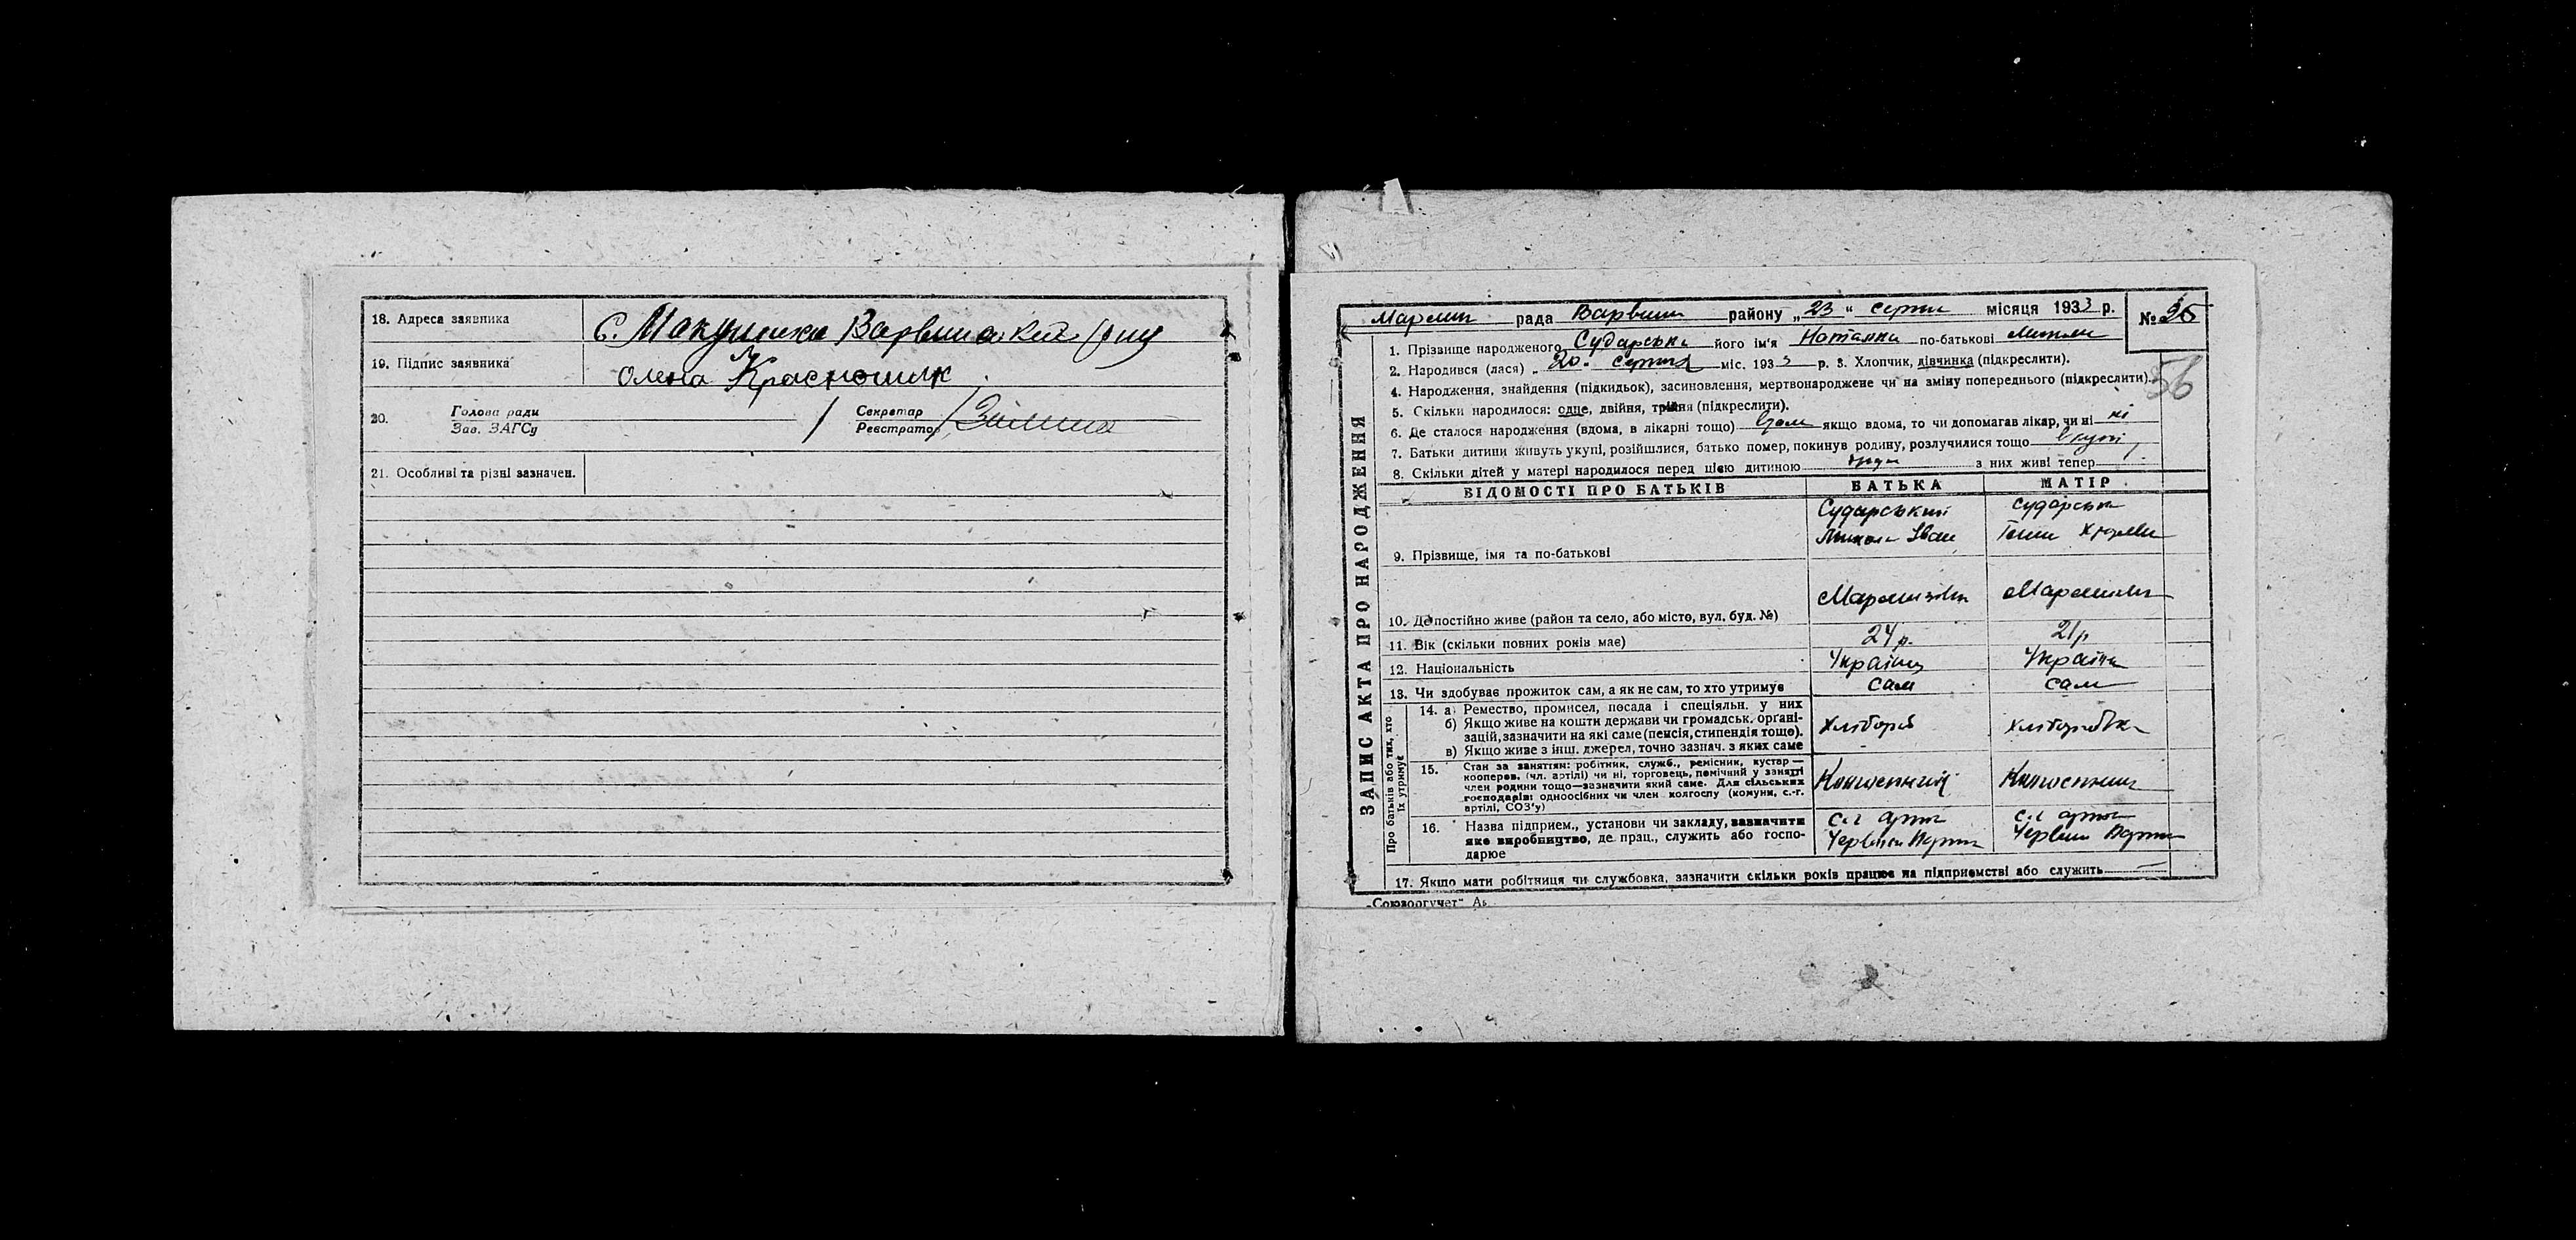 18. Адреса заявника
с. Макушиха
19. Підпис заявника
Олена Красношлик
20. Голова ради
Зав. ЗАГСу
Секретар
Реєстратор
21. Особливі та різні зазначен.
ЗАПИС АКТА ПРО НАРОДЖЕННЯ
рада Варвин району „23“ серпн місяця 1933 р.
№
1. Прізвище народженого Сударська його ім'я Наталка по-батькові Микол
2. Народився (лася) „20. серпня міс. 1933 р. 3. Хлопчик, дівчинка (підкреслити).
56
4. Народження, знайдення (підкидьок), засиновлення, мертвонароджене чи на зміну попереднього (підкреслити).
5. Скільки народилося: одне, двійня, трійня (підкреслити).
6. Де сталося народження (вдома, в лікарні тощо) якщо вдома, то чи допомагав лікар, чи ні ні
7. Батьки дитини живуть укупі, розійшлися, батько помер, покинув родину, розлучилися тощо вкупі
8. Скільки дітей у матері народилося перед цією дитиною з них живі тепер
ВІДОМОСТІ ПРО БАТЬКІВ БАТЬКА МАТІР
9. Прізвище, імя та по-батькові
Сударський
Микола Іван
Сударська
10. Де постійно живе (район та село, або місто, вул. буд. №)
11. Вік (скільки повних років має) 24 р. 21 р
12. Національність Українц Україн
13. Чи здобуває прожиток сам, а як не сам, то хто утримує сам сам
Про батьків або тих, хто
їх утримує
14. а) Ремество, промисел, посада і спеціяльн. у них
б) Якщо живе на кошти держави чи громадськ. органі-
зацій, зазначити на які саме (пенсія, стипендія тощо).
в) Якщо живе з інш. джерел, точно зазнач. з яких саме
Хлібороб
Хліборобка
15. Стан за заняттям: робітник, служб., ремісник, кустар—
кооперов. (чл. артілі) чи ні, торговець, помічний у занятті
член родини тощо—зазначити який саме. Для сільських
господарів: одноосібних чи член колгоспу (комуни, с.-г.
артілі, СОЗ'у)
Колгоспний
Колгоспниц
16. Назва підприєм., установи чи закладу, зазначити
яке виробництво, де прац., служить або госпо-
дарює
с.г арт
с.г арт
17. Якщо мати робітниця чи службовка, зазначити скільки років працює на підприємстві або служить —
„Союзоргучет“